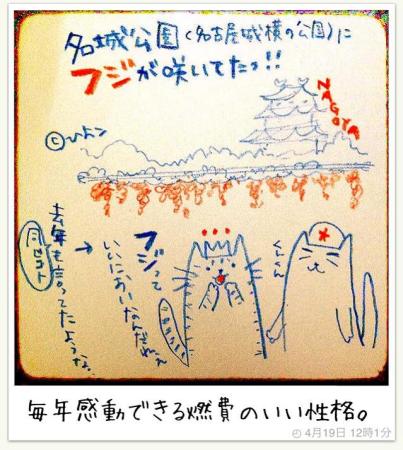 名城公園(名古屋城横の公園)に
フジが咲いてたっ!!
NAGOYA
©ひよン
フジって
いいにおいなんだねぇ
くんくん
→
去年も言ってたような。
同じコト
毎年感動できる燃費のいい性格。
4月19日 12時1分